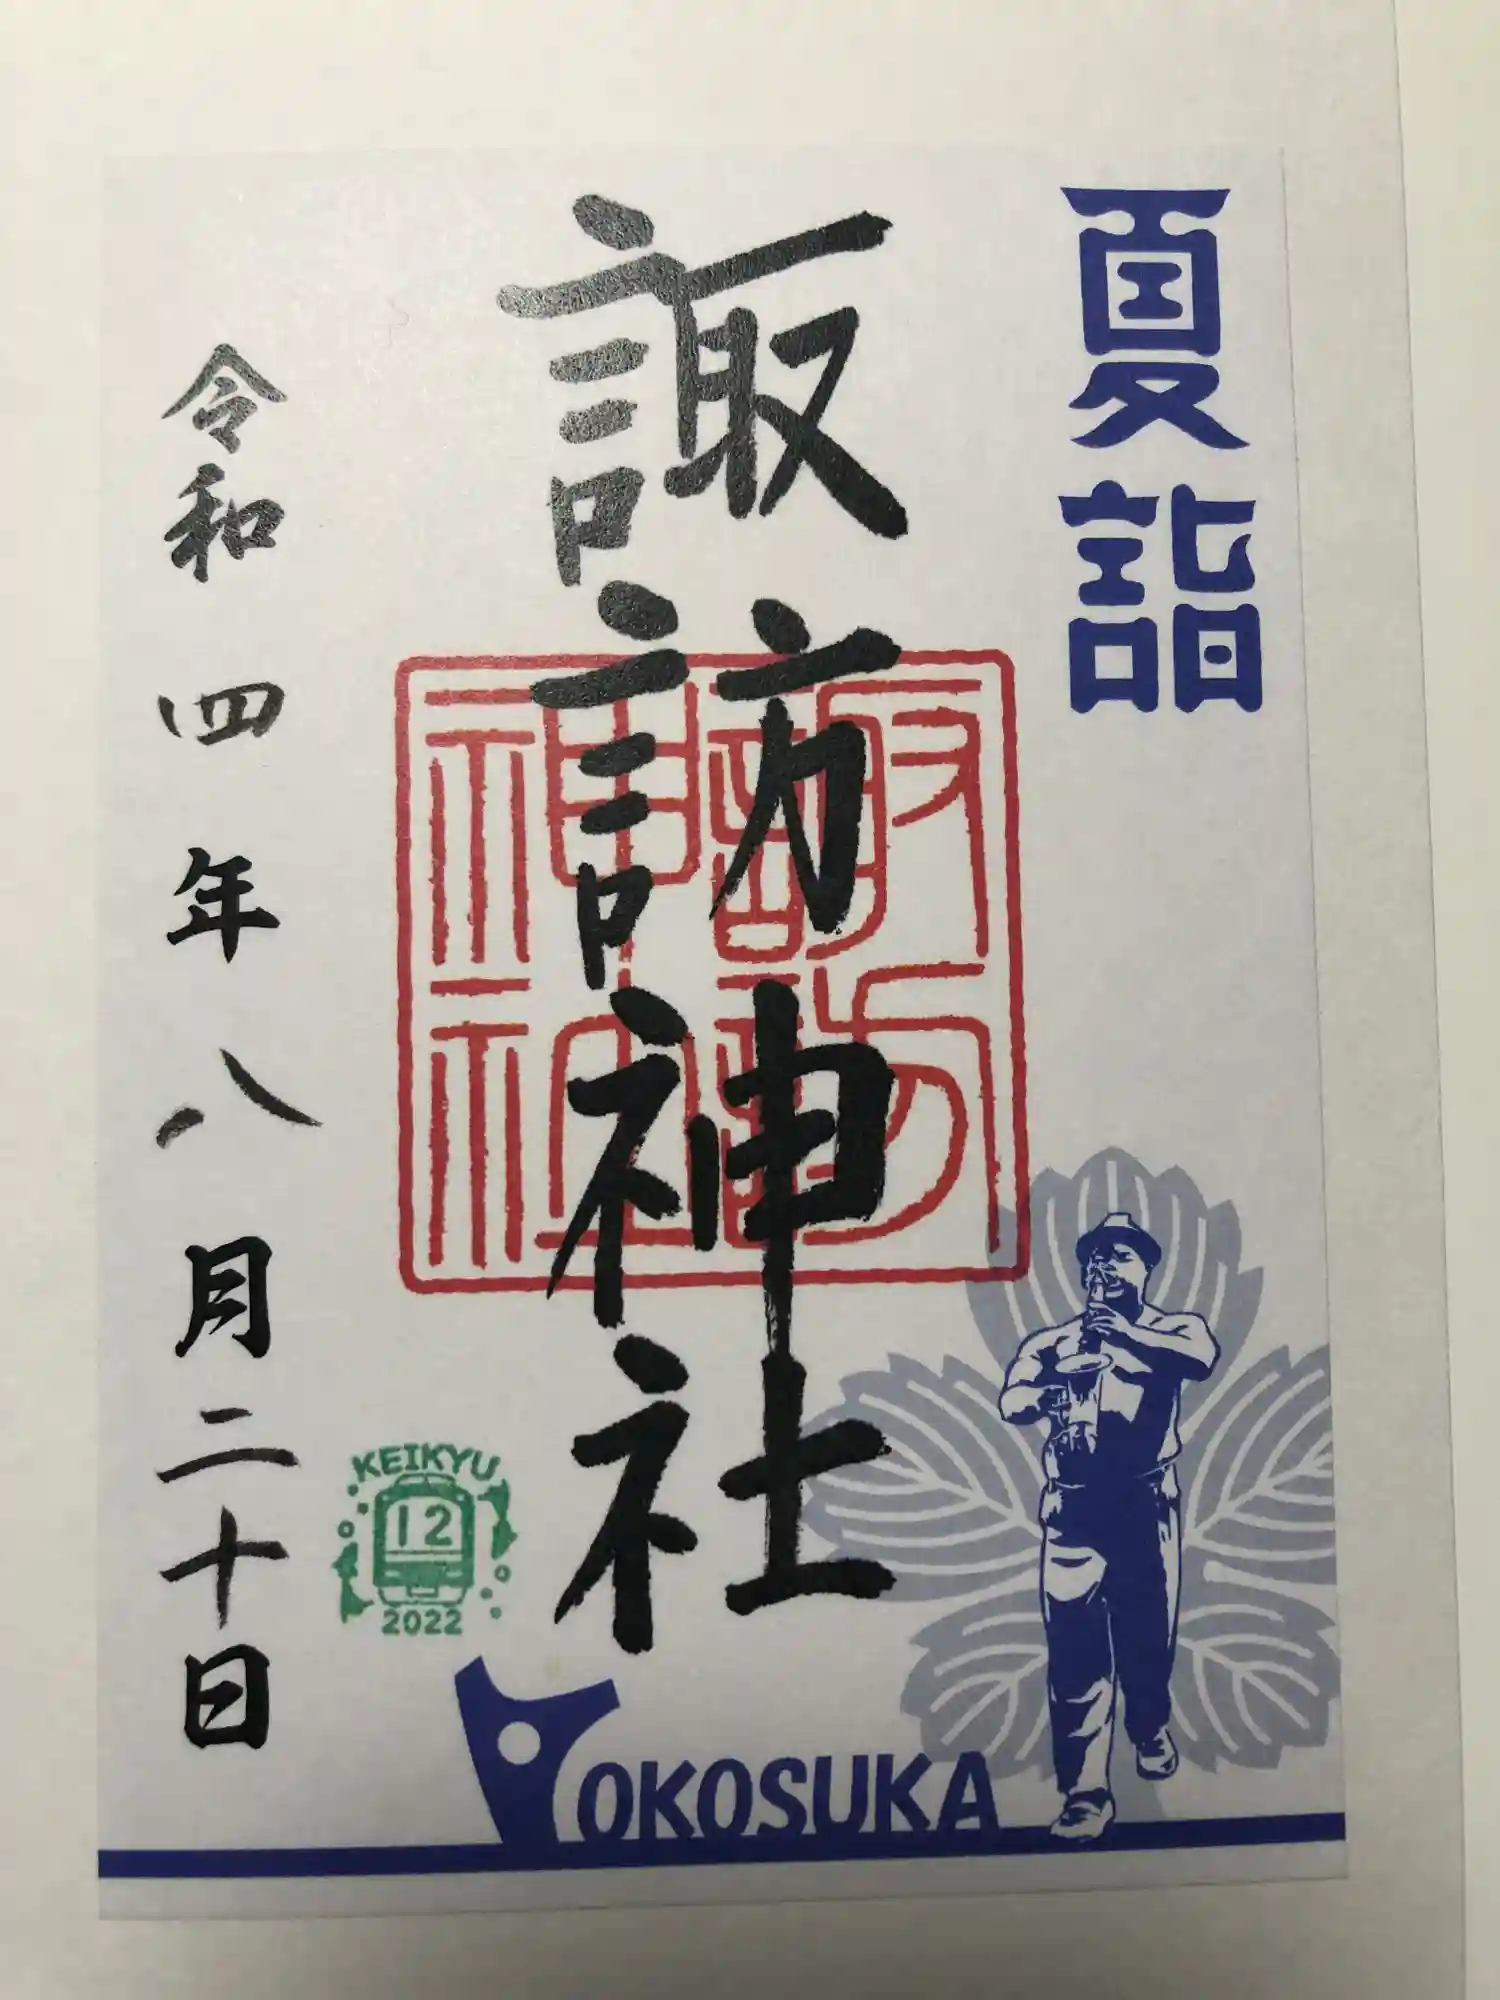 夏詣
諏訪神社
諏訪神社
令和四年八月二十日
KEIKYU
12
2022
YOKOSUKA